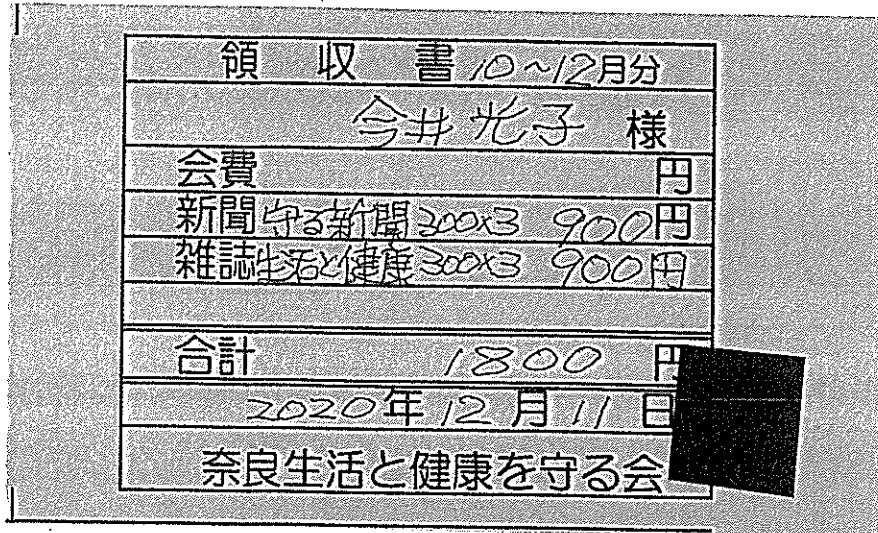 領 収 書 10～12月分
今井光子 様
会費 円
新聞 守る新聞 300×3 900円
雑誌 生活と健康 300×3 900円
合計 1800 円
2020年12月11日
奈良生活と健康を守る会